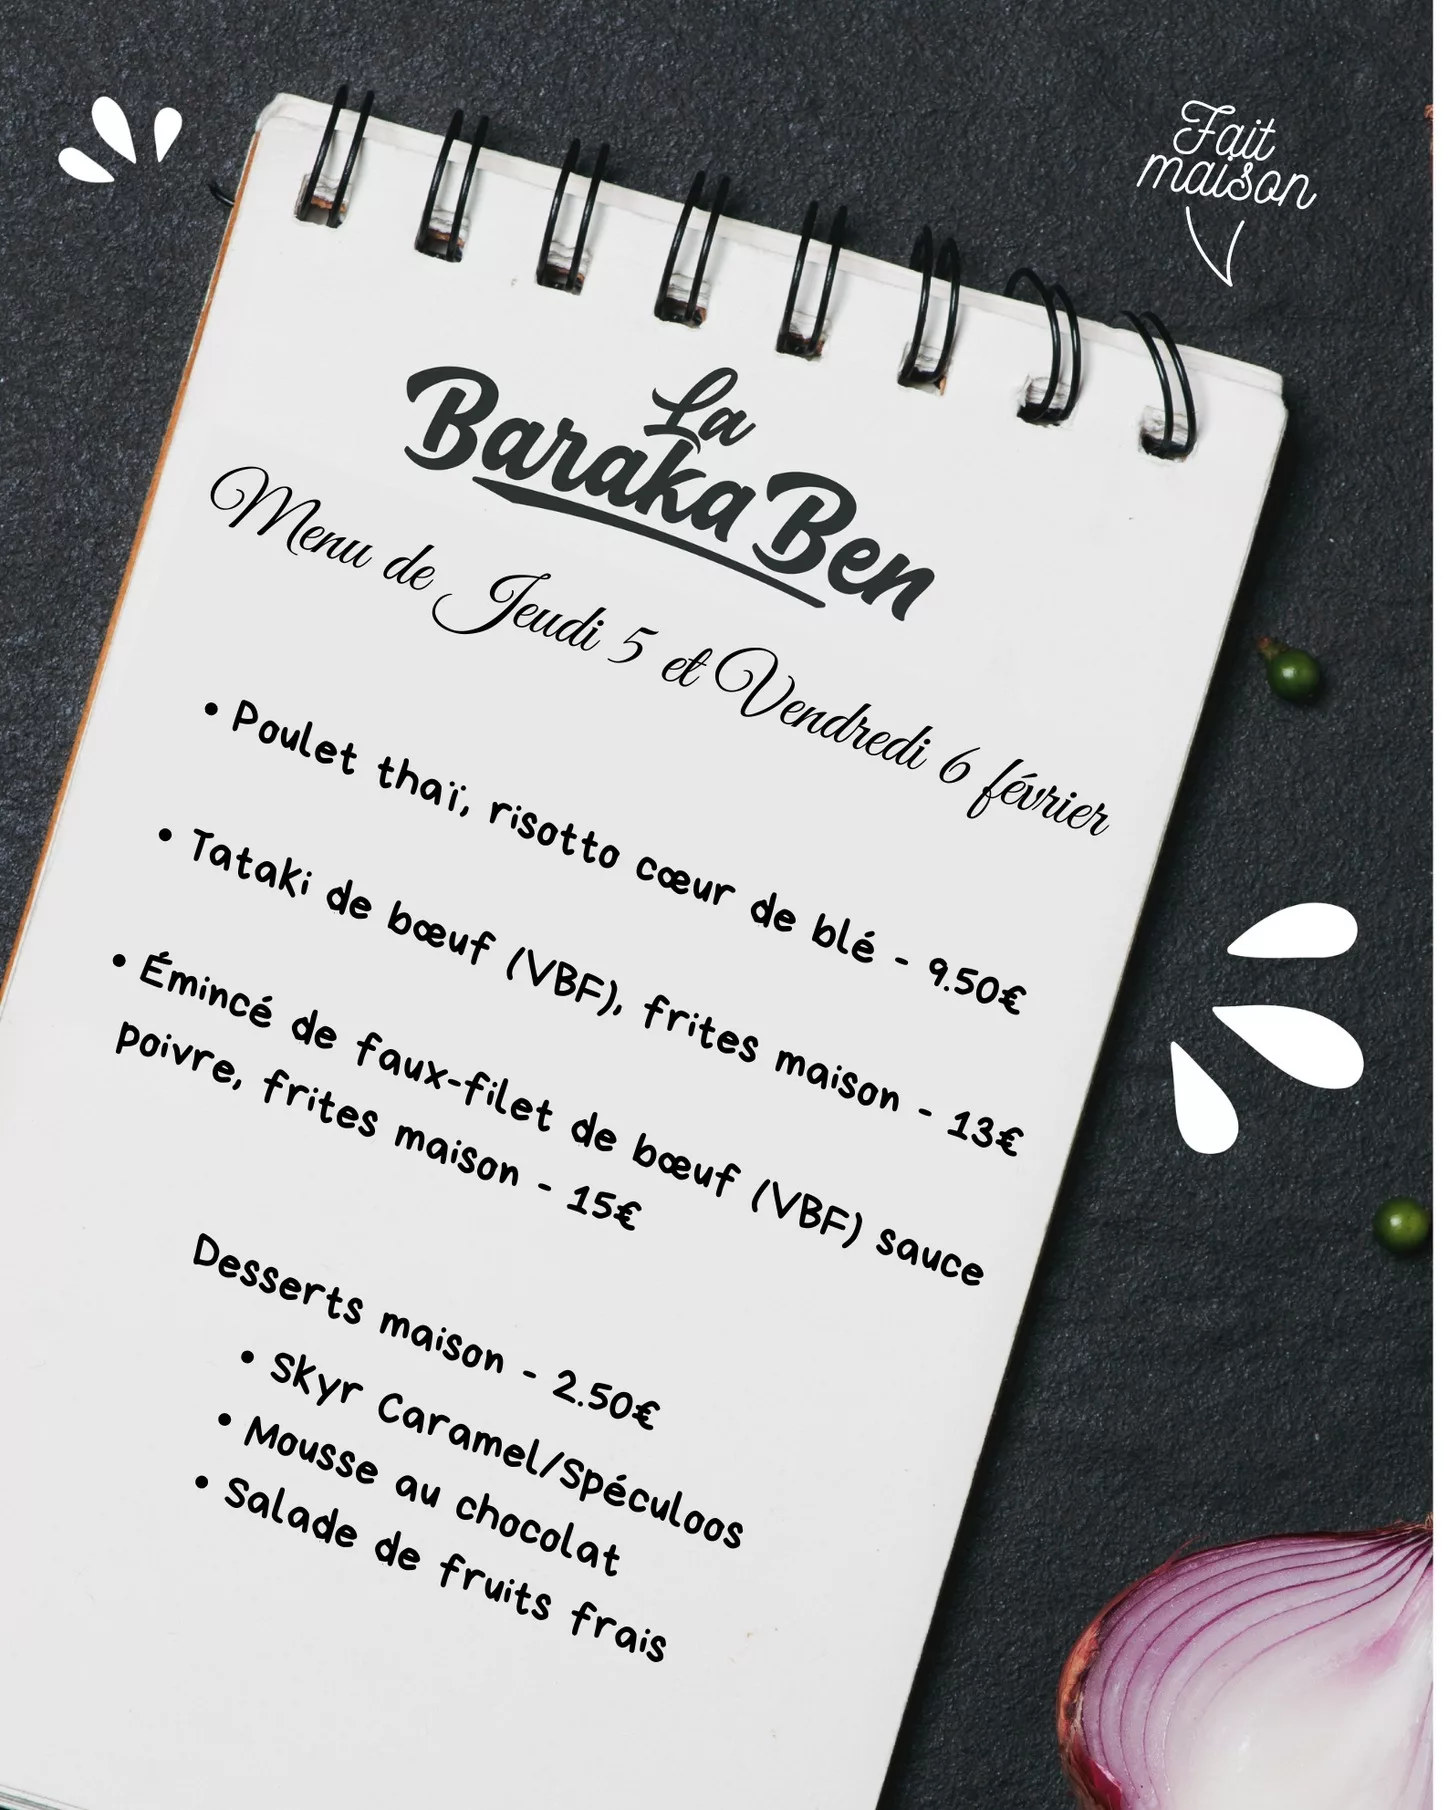 Fait
maison
La
Baraka Ben
Menu de Jeudi 5 et Vendredi 6 février
• Poulet thaï, risotto cœur de blé - 9.50€
• Tataki de bœuf (VBF), frites maison - 13€
• Émincé de faux-filet de bœuf (VBF) sauce
poivre, frites maison - 15€
Desserts maison - 2.50€
• Skyr Caramel/Spéculoos
• Mousse au chocolat
• Salade de fruits frais